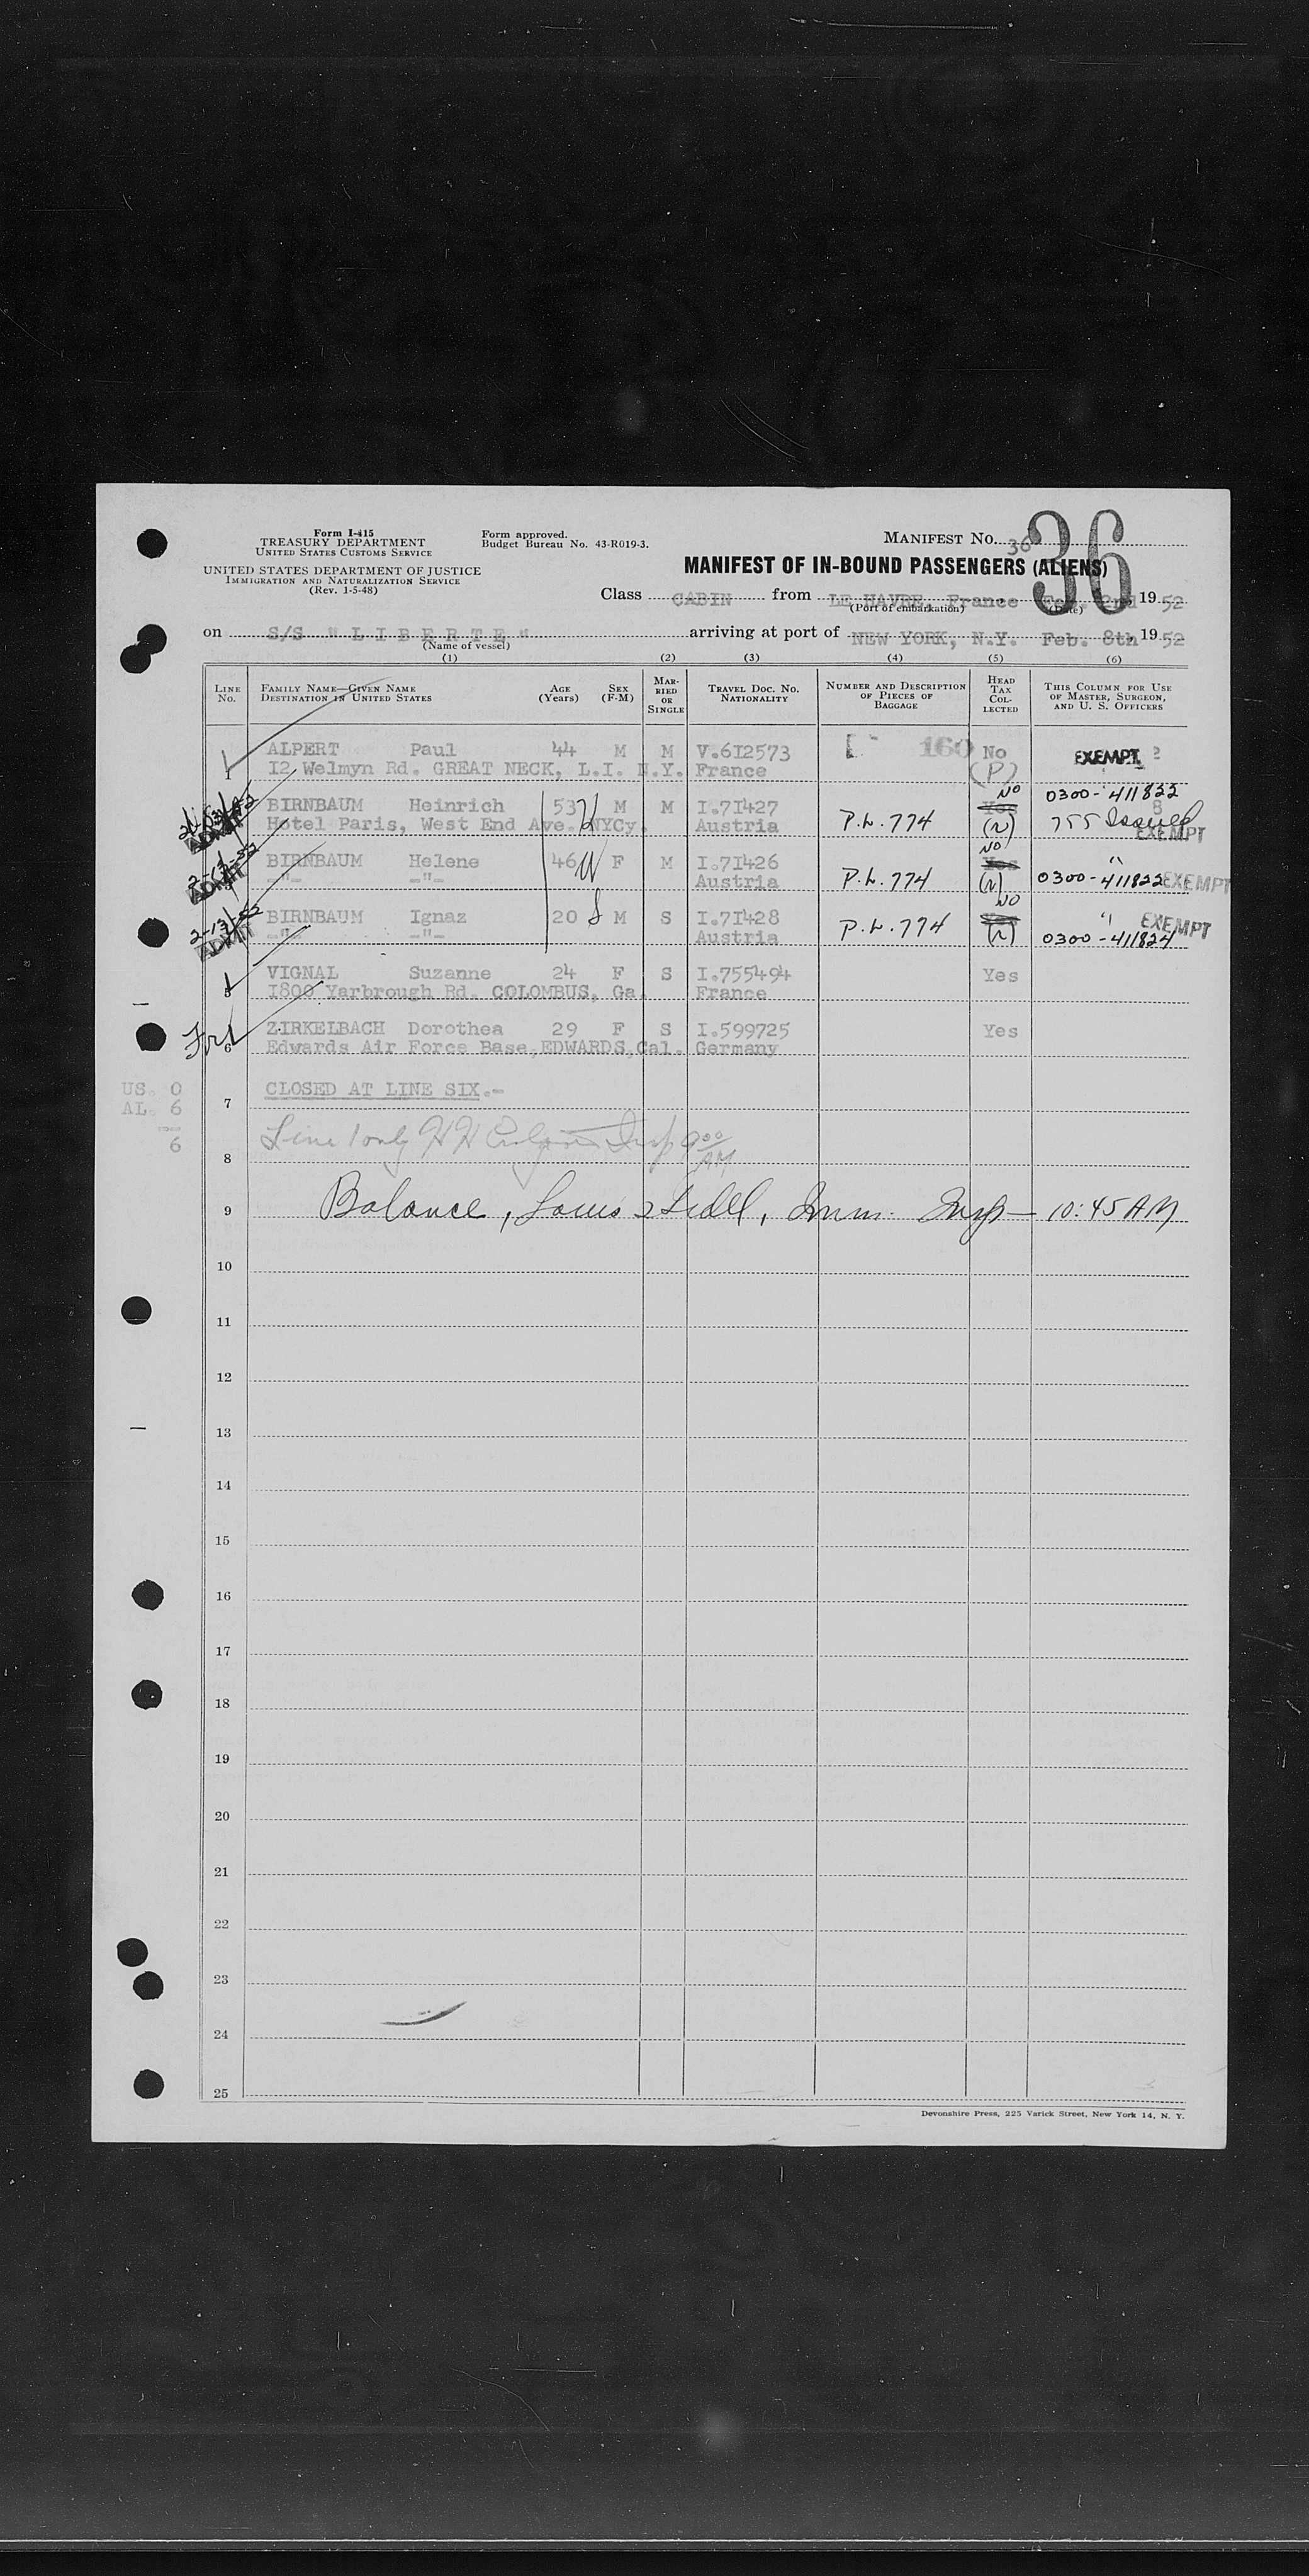 Form I-415
TREASURY DEPARTMENT
UNITED STATES CUSTOMS SERVICE
UNITED STATES DEPARTMENT OF JUSTICE
IMMIGRATION AND NATURALIZATION SERVICE
(Rev. 1-5-48)
Form approved.
Budget Bureau No. 43-R019-3.
MANIFEST No. 36
36
MANIFEST OF IN-BOUND PASSENGERS (ALIENS)
Class CABIN from LE HAVRE, France, Feb. 2nd 19 52
(Port of embarkation) (Date)
on S/S "LIBERTE" arriving at port of NEW YORK, N.Y. Feb. 8th, 19 52
(Name of vessel)
(1) (2) (3) (4) (5) (6)
LINE No. FAMILY NAME—GIVEN NAME DESTINATION IN UNITED STATES AGE (Years) SEX (F-M) MARRIED OR SINGLE TRAVEL DOC. No. NATIONALITY NUMBER AND DESCRIPTION OF PIECES OF BAGGAGE HEAD TAX COLLECTED THIS COLUMN FOR USE OF MASTER, SURGEON, AND U. S. OFFICERS
ALPERT Paul 44 M M V.6I2573 160 No EXEMPT
1 I2 Welmyn Rd. GREAT NECK, L.I. N.Y. France (P)
BIRNBAUM Heinrich 53 M M I.7I427 P.L. 774 NO Yes 0300-411822
ADMIT Hotel Paris, West End Ave. NYCy. Austria (N) 755 Issued EXEMPT
2-13-52 BIRNBAUM Helene 46 W F M I.7I426 P.L. 774 NO Yes "
ADMIT -"- -"- Austria (N) 0300-411823 EXEMPT
2-13-52 BIRNBAUM Ignaz 20 S M S I.7I428 P.L. 774 NO Yes " EXEMPT
ADMIT -"- -"- Austria (N) 0300-411824
VIGNAL Suzanne 24 F S I.755494 Yes
5 I800 Yarbrough Rd. COLOMBUS, Ga. France
ZIRKELBACH Dorothea 29 F S I.599725 Yes
6 Edwards Air Force Base, EDWARDS, Cal. Germany
US. 0
AL. 6
6
7 CLOSED AT LINE SIX.-
8 Line 1 only H H Insp 9 00 AM
9 Balance, Louis Sidell, Imm. Insp— 10:45 AM
10
11
12
13
14
15
16
17
18
19
20
21
22
23
24
25
Devonshire Press, 225 Varick Street, New York 14, N. Y.